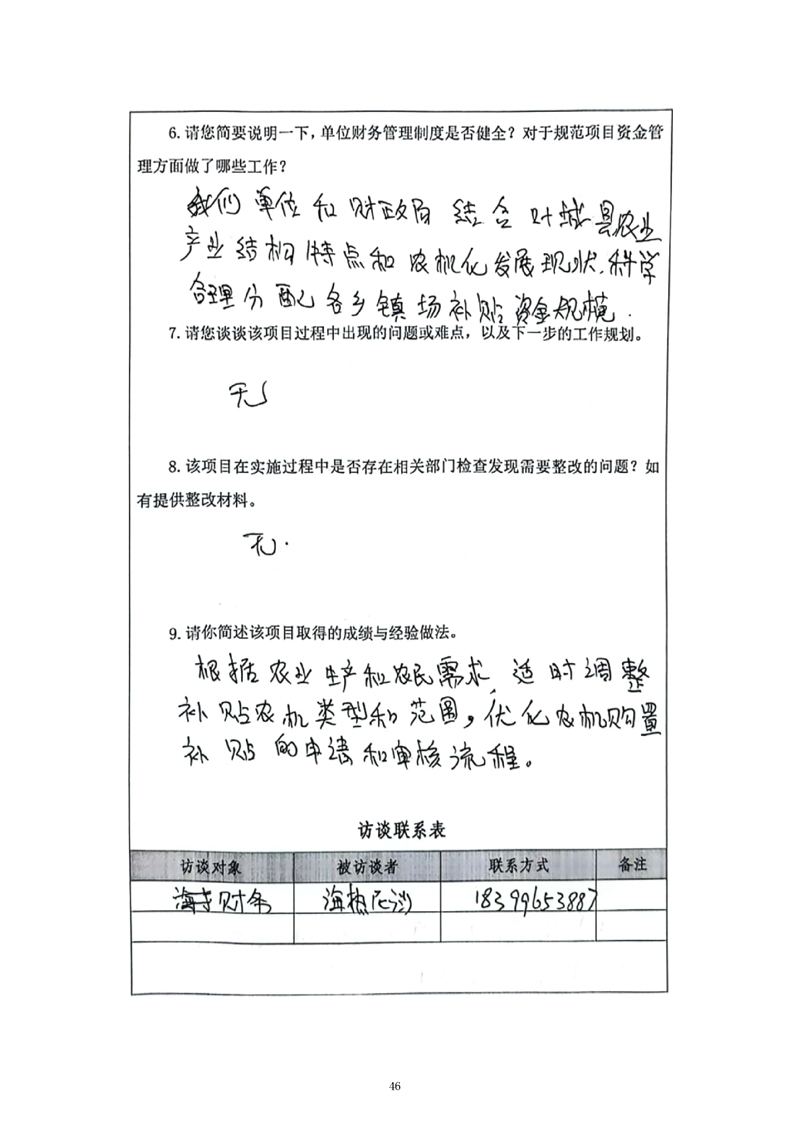 6.请您简要说明一下，单位财务管理制度是否健全？对于规范项目资金管
理方面做了哪些工作？
我们单位和财政局结合叶城县农业
产业结构特点和农机化发展现状.科学
合理分配各乡镇场补贴资金规模.
7.请您谈谈该项目过程中出现的问题或难点，以及下一步的工作规划。
无
8.该项目在实施过程中是否存在相关部门检查发现需要整改的问题？如
有提供整改材料。
无.
9.请你简述该项目取得的成绩与经验做法。
根据农业生产和农民需求，适时调整
补贴农机类型和范围，优化农机购置
补贴的申请和审核流程。
访谈联系表
访谈对象 被访谈者 联系方式 备注
财务 海热尼沙 18399653887
46